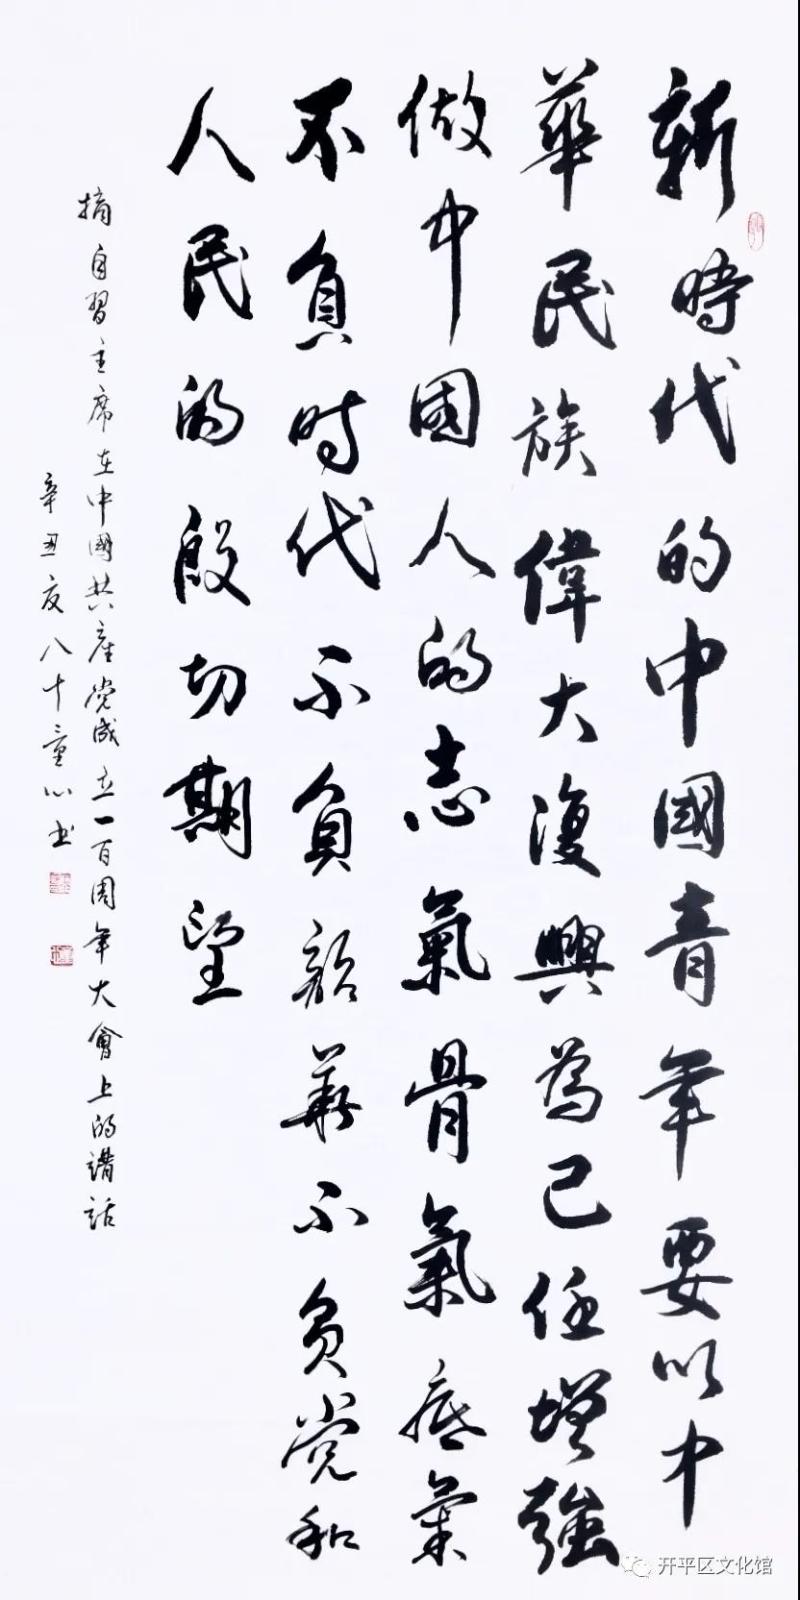 新時代的中國青年要以中
華民族偉大復興為己任增強
做中國人的志氣骨氣底氣
不負时代不負韶華不負党和
人民的殷切期望
摘自習主席在中國共產党成立一百周年大會上的講話
辛丑夏八十三童心书
开平区文化馆